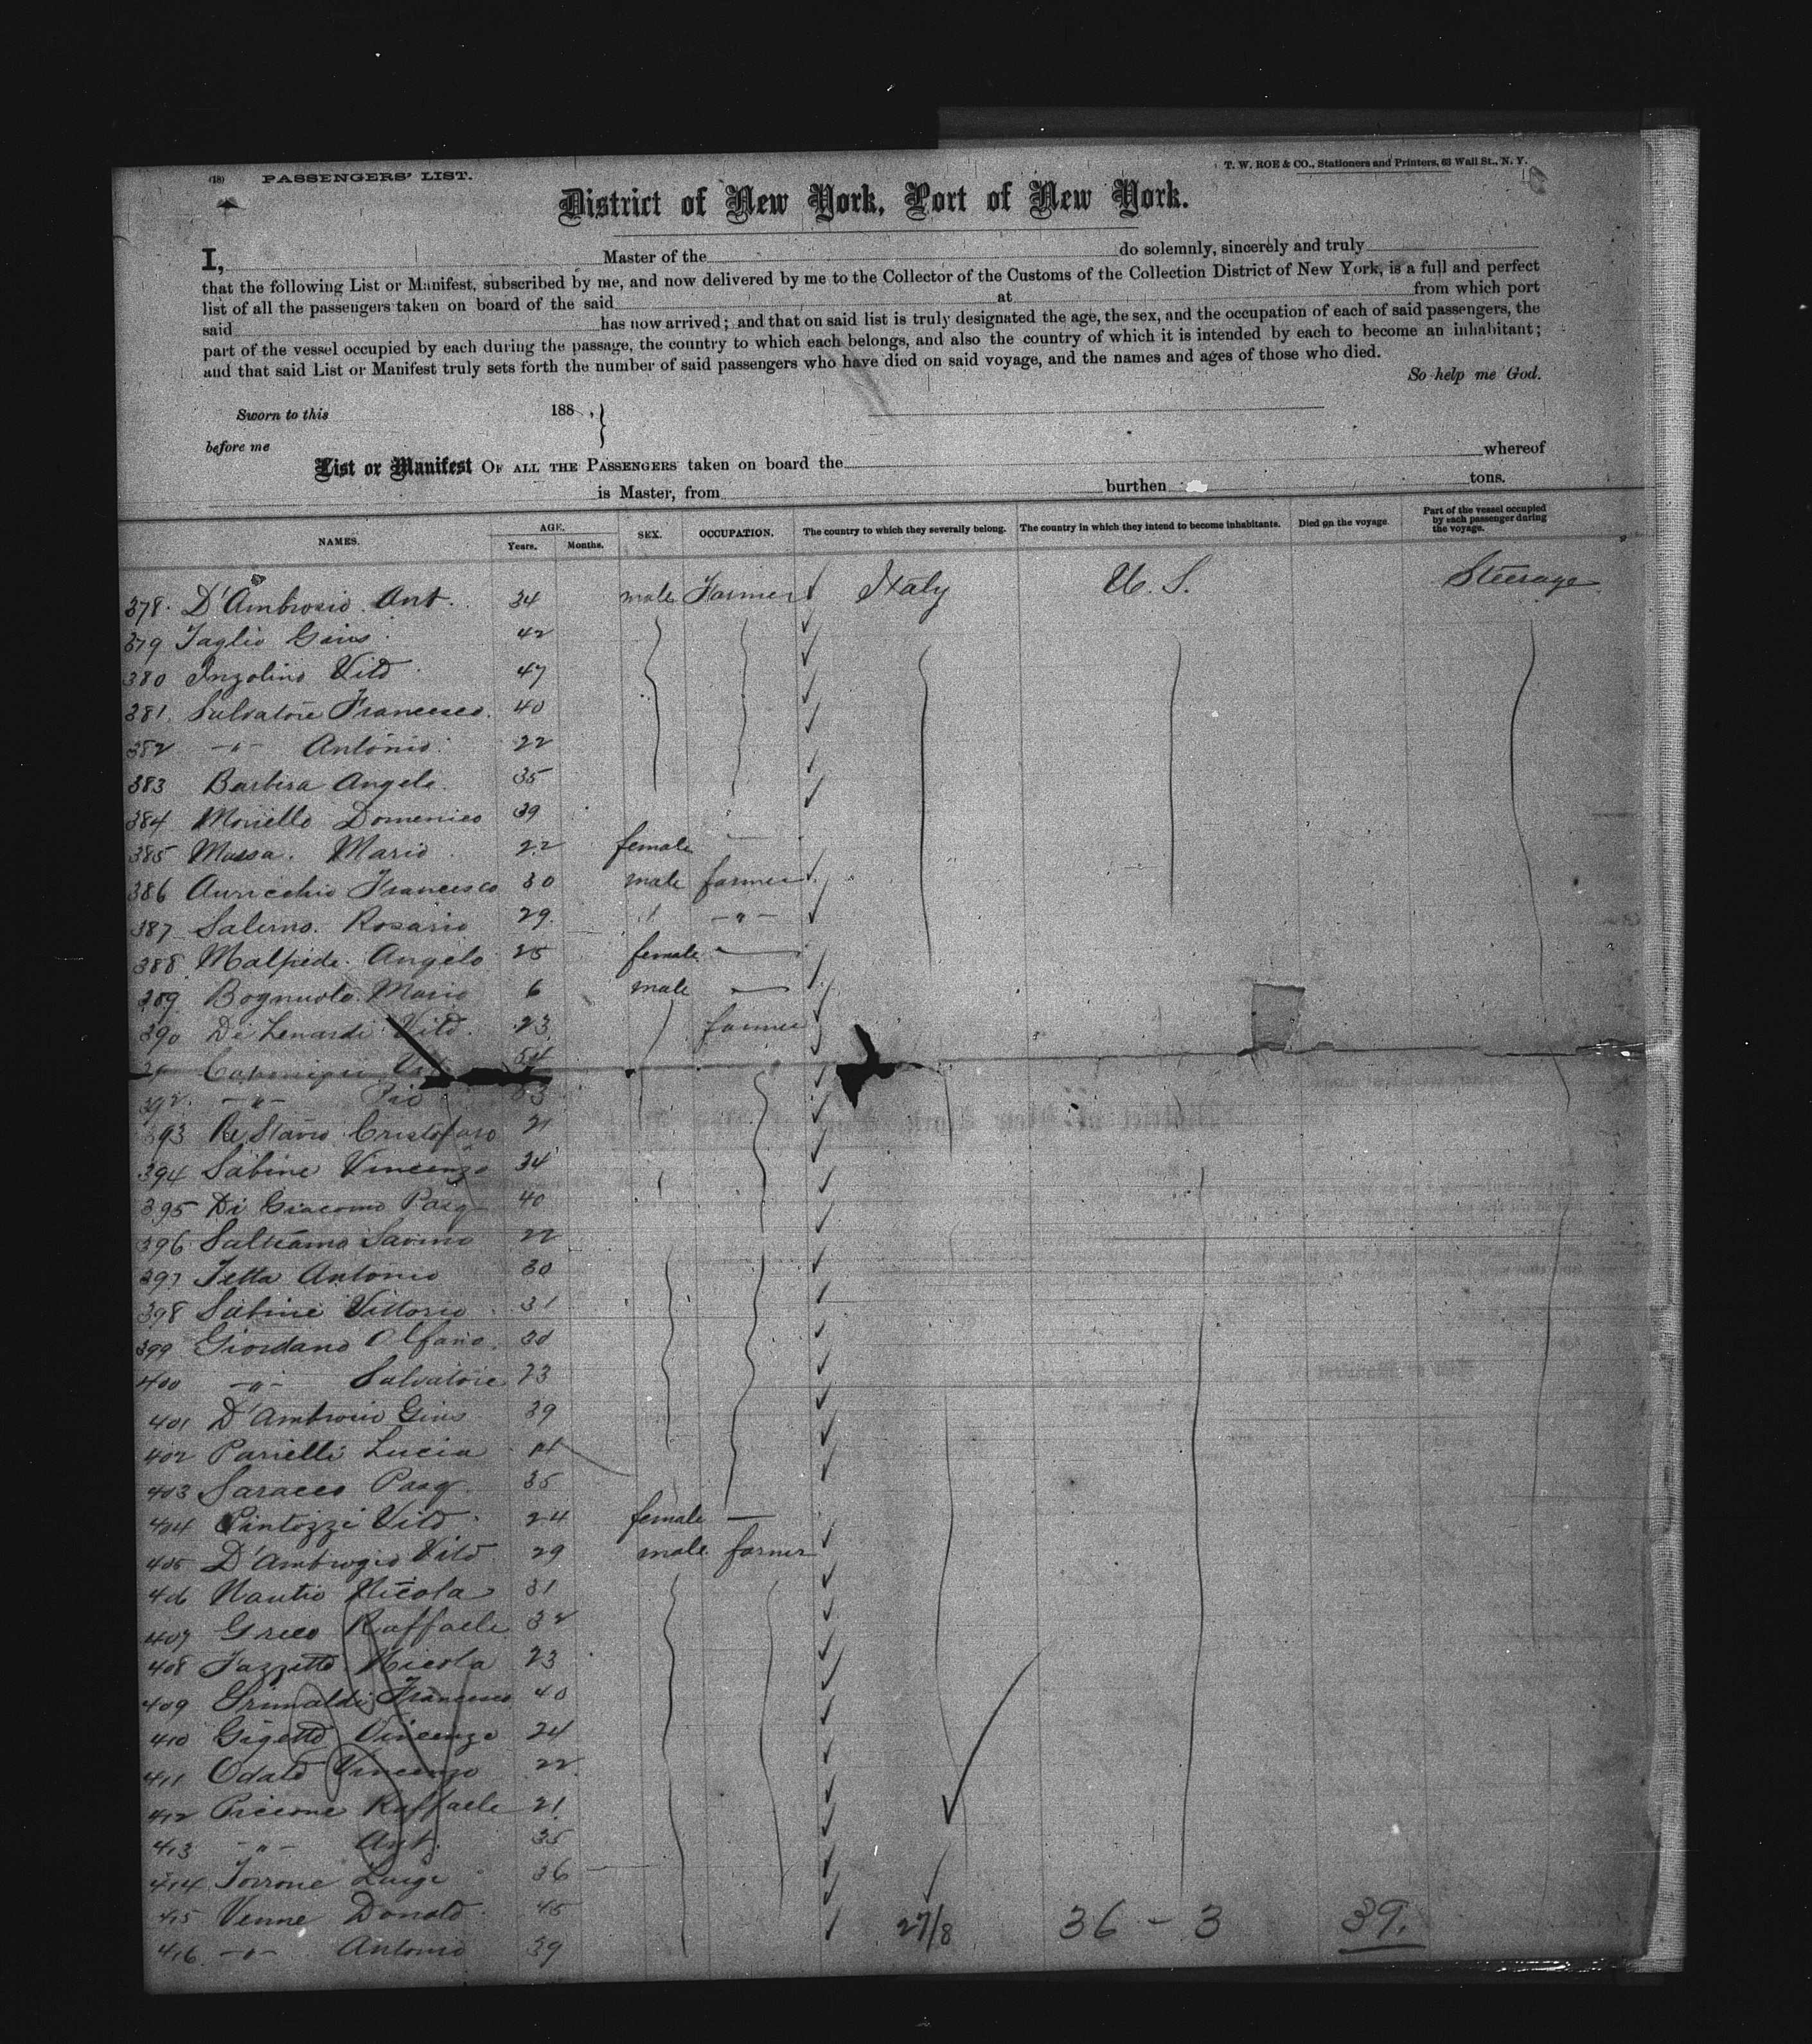 (18) PASSENGERS' LIST.
T. W. ROE & CO., Stationers and Printers, 63 Wall St., N. Y.
District of New York, Port of New York.
I, Master of the do solemnly, sincerely and truly
that the following List or Manifest, subscribed by me, and now delivered by me to the Collector of the Customs of the Collection District of New York, is a full and perfect
list of all the passengers taken on board of the said at from which port
said has now arrived; and that on said list is truly designated the age, the sex, and the occupation of each of said passengers, the
part of the vessel occupied by each during the passage, the country to which each belongs, and also the country of which it is intended by each to become an inhabitant;
and that said List or Manifest truly sets forth the number of said passengers who have died on said voyage, and the names and ages of those who died.
So help me God.
Sworn to this 188 , }
before me
List or Manifest OF ALL THE PASSENGERS taken on board the whereof
is Master, from burthen tons.
NAMES. AGE. Years. Months. SEX. OCCUPATION. The country to which they severally belong. The country in which they intend to become inhabitants. Died on the voyage. Part of the vessel occupied by each passenger during the voyage.
378. D'Ambrosio Ant. 34 male Farmer Italy U. S. Steerage
379 Taglio Gius 42
380 Inzolino Vito 47
381. Salvatore Francesco. 40
382 -"- Antonio 22
383 Barbera Angelo 35
384 Moriello Domenico 39
385 Massa. Maria 22 female —
386 Auricchio Francesco 30 male farmer
387 Salerno. Rosario 29. " -"-
388 Malpiede Angelo 25 female —
389 Mario 6 male —
390 Di Lenardi Vito. 23 farmer
54
392 -"- Pio 33
393 Cristofaro 21
394 Sabine Vincenzo 34
395 Di Giacomo Pasq 40
396 Savino 22
397 Tetta Antonio 30
398 Sabine Vittorio 31
399 Giordano Alfano. 30
400 -"- Salvatore 23
401 D'Ambrosio Gius 39
402 Parielli Lucia
403 Saracco Pasq. 35
404 Pintozzi Vito 24 female —
405 D'Ambrogio Vito 29 male farmer
406 Nautio Nicola 31
407 Greco Raffaele 32
408 Nicola 23
409 Grimaldi Francesco 40
410 Gigetto Vincenzo 24
411 Odato Vincenzo 22.
412 Piccione Raffaele 21
413 -"- Ant. 35
414 Torrone Luigi 36
415 Venne Donato 45
416 -"- Antonio 39
27/8 36 - 3 39.